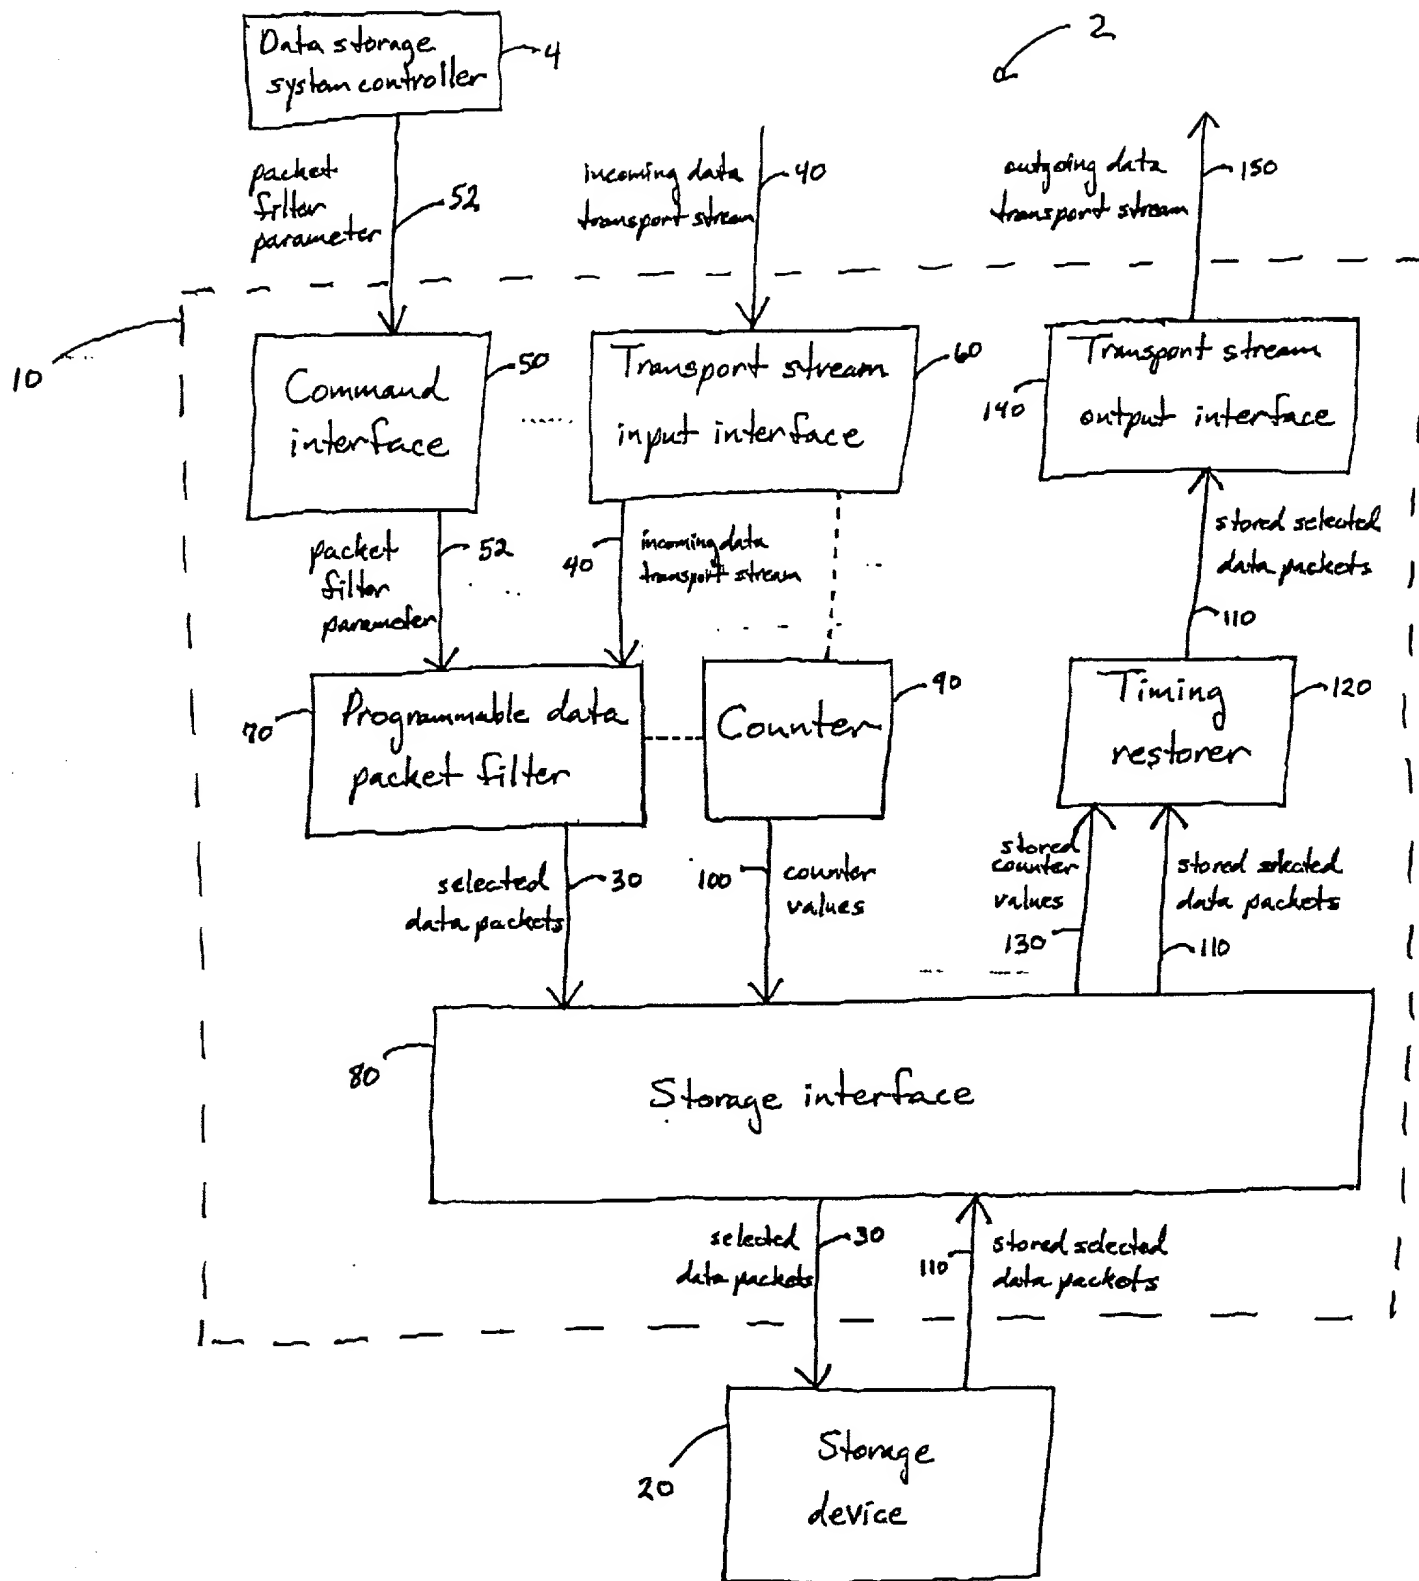 2
Data storage
system controller
4
packet
filter
parameter
52
incoming data
transport stream
40
outgoing data
transport stream
150
10
Command
interface
50
Transport stream
input interface
60
Transport stream
output interface
140
packet
filter
parameter
52
40
incoming data
transport stream
stored selected
data packets
110
Programmable data
packet filter
70
Counter
90
Timing
restorer
120
selected
data packets
30
100
counter
values
stored
counter
values
130
stored selected
data packets
110
80
Storage interface
selected
data packets
30
110
stored selected
data packets
20
Storage
device